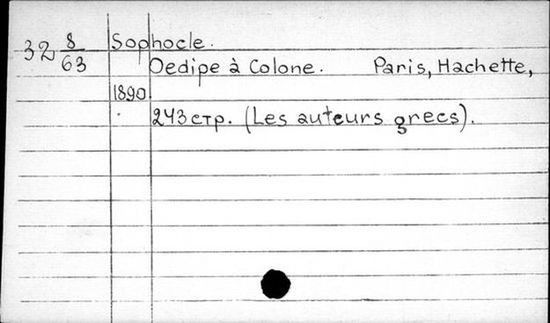 32 8/63 Sophocle.
Oedipe à Colone. Paris, Hachette,
1890.
243 стр. (Les auteurs grecs).